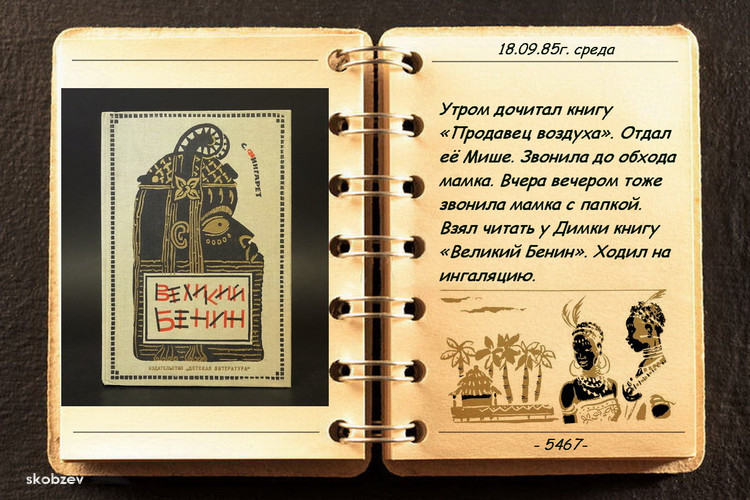 С. ФИНГАРЕТ
ВЕЛИКИЙ
БЕНИН
ИЗДАТЕЛЬСТВО „ДЕТСКАЯ ЛИТЕРАТУРА"
18.09.85г. среда
Утром дочитал книгу
«Продавец воздуха». Отдал
её Мише. Звонила до обхода
мамка. Вчера вечером тоже
звонила мамка с папкой.
Взял читать у Димки книгу
«Великий Бенин». Ходил на
ингаляцию.
- 5467-
skobzev